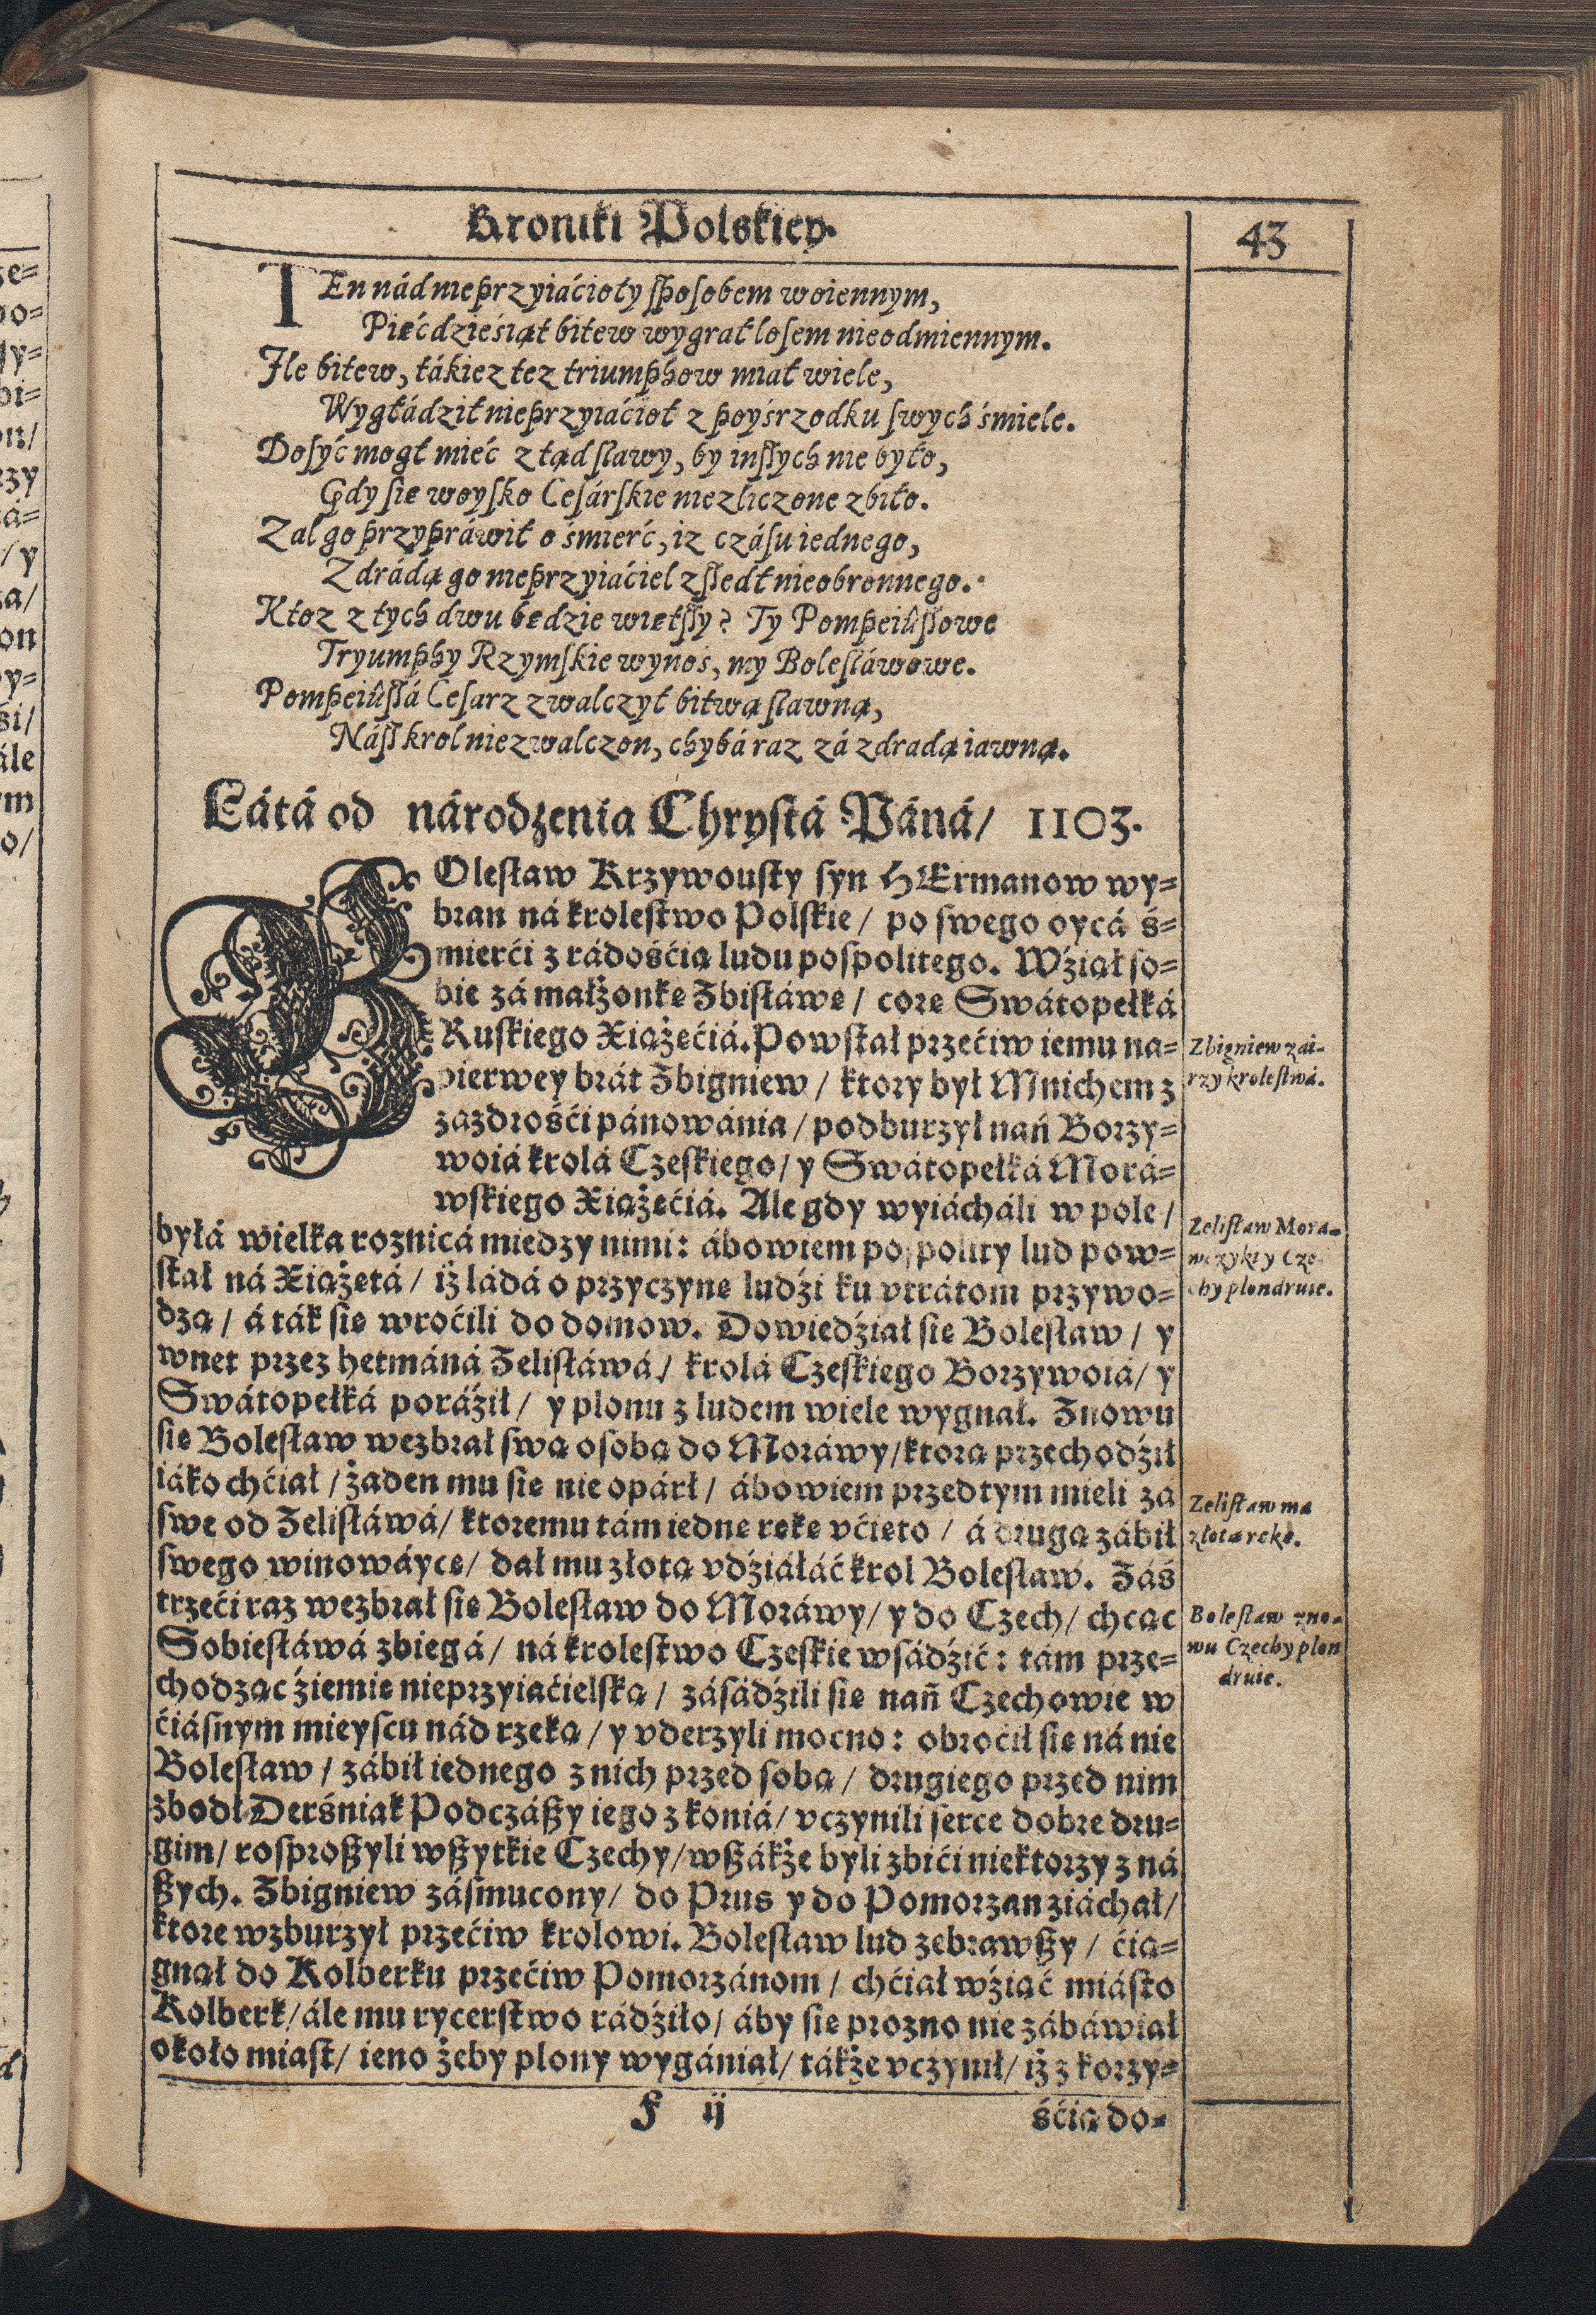 Kroniki Polskiey.
43
TEn nád nieprzyiáćioły sposobem woiennym,
Pięćdzieśiąt bitew wygrał losem nieodmiennym.
Ile bitew, tákiez tez triumphow miał wiele,
Wygłádził nieprzyiáćioł z poyśrzodku swych śmiele.
Dosyć mogł mieć z tąd sławy, by inßych nie było,
Gdy się woysko Cesárskie niezliczone zbiło.
Zal go przypráwił o śmierć, iz czásu iednego,
Zdrádą go nieprzyiaćiel zßedł nieobronnego.
Ktoz z tych dwu będzie więtßy? Ty Pompeiûßowe
Tryumphy Rzymskie wynoś, my Bolesłáwowe.
Pompeiûßá Cesarz zwalczył bitwą sławną,
Náß krol niezwalczon, chybá raz zá zdradą iawną.
Látá od národzenia Chrystá Páná/ 1103.
BOlesław Krzywousty syn HErmanow wy=
bran ná krolestwo Polskie / po swego oycá ś=
mierći z rádośćią ludu pospolitego. Wźiął so=
bie zá małżonkę Zbisłáwę / corę Swátopełká
Ruskiego Xiążęćiá. Powstał przećiw iemu na=
pierwey brát Zbigniew / ktory był Mnichem z
zazdrośći pánowánia / podburzył nań Borzy=
woiá krolá Czeskiego / y Swátopełká Morá=
wskiego Xiążęćiá. Ale gdy wyiácháli w pole /
byłá wielka roznicá miedzy nimi: ábowiem pospolity lud pow=
stał ná Xiążętá / iż ládá o przyczynę ludźi ku vtrátom przywo=
dzą / á ták się wroćili do domow. Dowiedźiał się Bolesław / y
wnet przez hetmáná Zelisłáwá / krolá Czeskiego Borzywoiá / y
Swátopełká poráźił / y plonu z ludem wiele wygnał. Znowu
się Bolesław wezbrał swą osobą do Moráwy / ktorą przechodźił
iáko chćiał / żaden mu się nie opárł / ábowiem przedtym mieli zá
swe od Zelisłáwá / ktoremu tám iednę rękę vćięto / á drugą zábił
swego winowáycę / dał mu złotą vdźiáłáć krol Bolesław. Záś
trzeći raz wezbrał się Bolesław do Moráwy / y do Czech / chcąc
Sobiesłáwá zbiegá / ná krolestwo Czeskie wsádźić: tám prze=
chodząc źiemię nieprzyiaćielską / zásádźili się nań Czechowie w
ćiásnym mieyscu nád rzeką / y vderzyli mocno: obroćił się ná nie
Bolesław / zábił iednego z nich przed sobą / drugiego przed nim
zbodł Derśniak Podczáßy iego z koniá / vczynili serce dobre dru=
gim / rosproßyli wßytkie Czechy / wßákże byli zbići niektorzy z ná
ßych. Zbigniew zásmucony / do Prus y do Pomorzan ziáchał /
ktore wzburzył przećiw krolowi. Bolesław lud zebrawßy / ćią=
gnął do Kolberku przećiw Pomorzánom / chćiał wźiąć miásto
Kolberk / ále mu rycerstwo rádźiło / áby się prozno nie zábáwiał
około miast / ieno żeby plony wygániał / tákże vczynił / iż z korzy=
Zbigniew zai-
rzy krolestwá.
Zelisław Mora-
wczyki y Cze
chy plondruie.
Zelisław ma
złotą rękę.
Bolesław zno-
wu Czechy plon
druie.
F ij
śćią do=